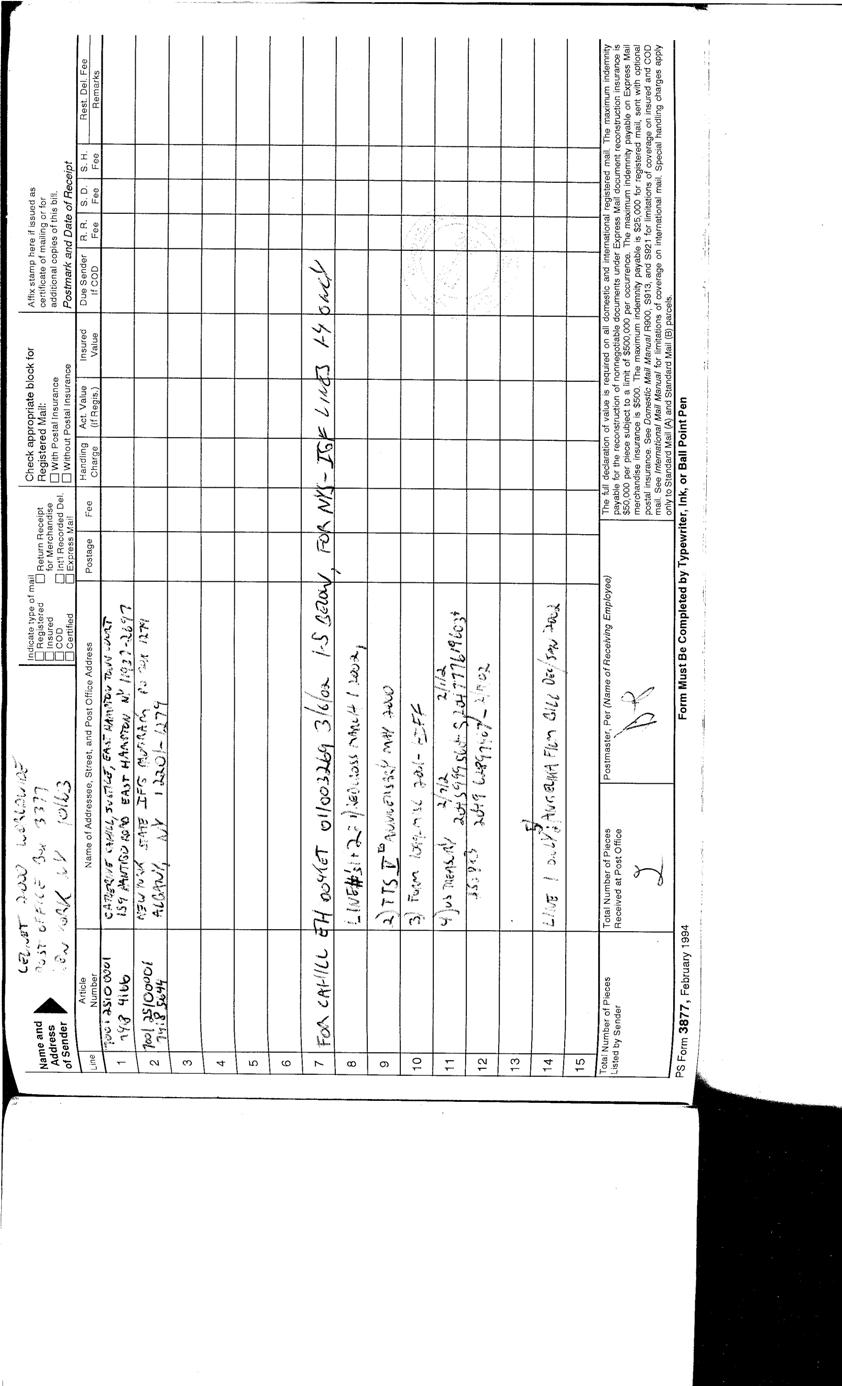 Name and
Address
of Sender
2000 WORLDWIDE
POST OFFICE BOX 3377
NEW YORK NY 10163
Indicate type of mail
Registered
Insured
COD
Certified
Return Receipt
for Merchandise
Int'l Recorded Del.
Express Mail
Check appropriate block for
Registered Mail:
With Postal Insurance
Without Postal Insurance
Affix stamp here if issued as
certificate of mailing or for
additional copies of this bill.
Postmark and Date of Receipt
Line
Article
Number
Name of Addressee, Street, and Post Office Address
Postage
Fee
Handling
Charge
Act. Value
(If Regis.)
Insured
Value
Due Sender
If COD
R. R.
Fee
S. D.
Fee
S. H.
Fee
Rest. Del. Fee
Remarks
1
7001 2510 0001
CATHERINE CAHILL, JUSTICE, EAST HAMPTON TOWN COURT
159 PANTIGO ROAD EAST HAMPTON NY 11937-2697
2
7001 2510 0001
NEW YORK STATE PO BOX 1279
ALBANY, NY 12201-1279
3
4
5
6
7 FOR CAHILL EH DOCKET 011003269 3/6/02 1-5 BELOW, FOR NYS- LINES 1-4 ONLY
8 MARCH 1 2002,
9 2) TTS V ANNIVERSARY MAY 2000
10 3) FORM
11 4) US TREASURY 2/7/2 2/1/2
12
13
14 LINE 1 ONLY: 5) FILM BILL DEC/JAN 2002
15
Total Number of Pieces
Listed by Sender
Total Number of Pieces
Received at Post Office
2
Postmaster, Per (Name of Receiving Employee)
The full declaration of value is required on all domestic and international registered mail. The maximum indemnity
payable for the reconstruction of nonnegotiable documents under Express Mail document reconstruction insurance is
$50,000 per piece subject to a limit of $500,000 per occurrence. The maximum indemnity payable on Express Mail
merchandise insurance is $500. The maximum indemnity payable is $25,000 for registered mail, sent with optional
postal insurance. See Domestic Mail Manual R900, S913, and S921 for limitations of coverage on insured and COD
mail. See International Mail Manual for limitations of coverage on international mail. Special handling charges apply
only to Standard Mail (A) and Standard Mail (B) parcels.
PS Form 3877, February 1994
Form Must Be Completed by Typewriter, Ink, or Ball Point Pen